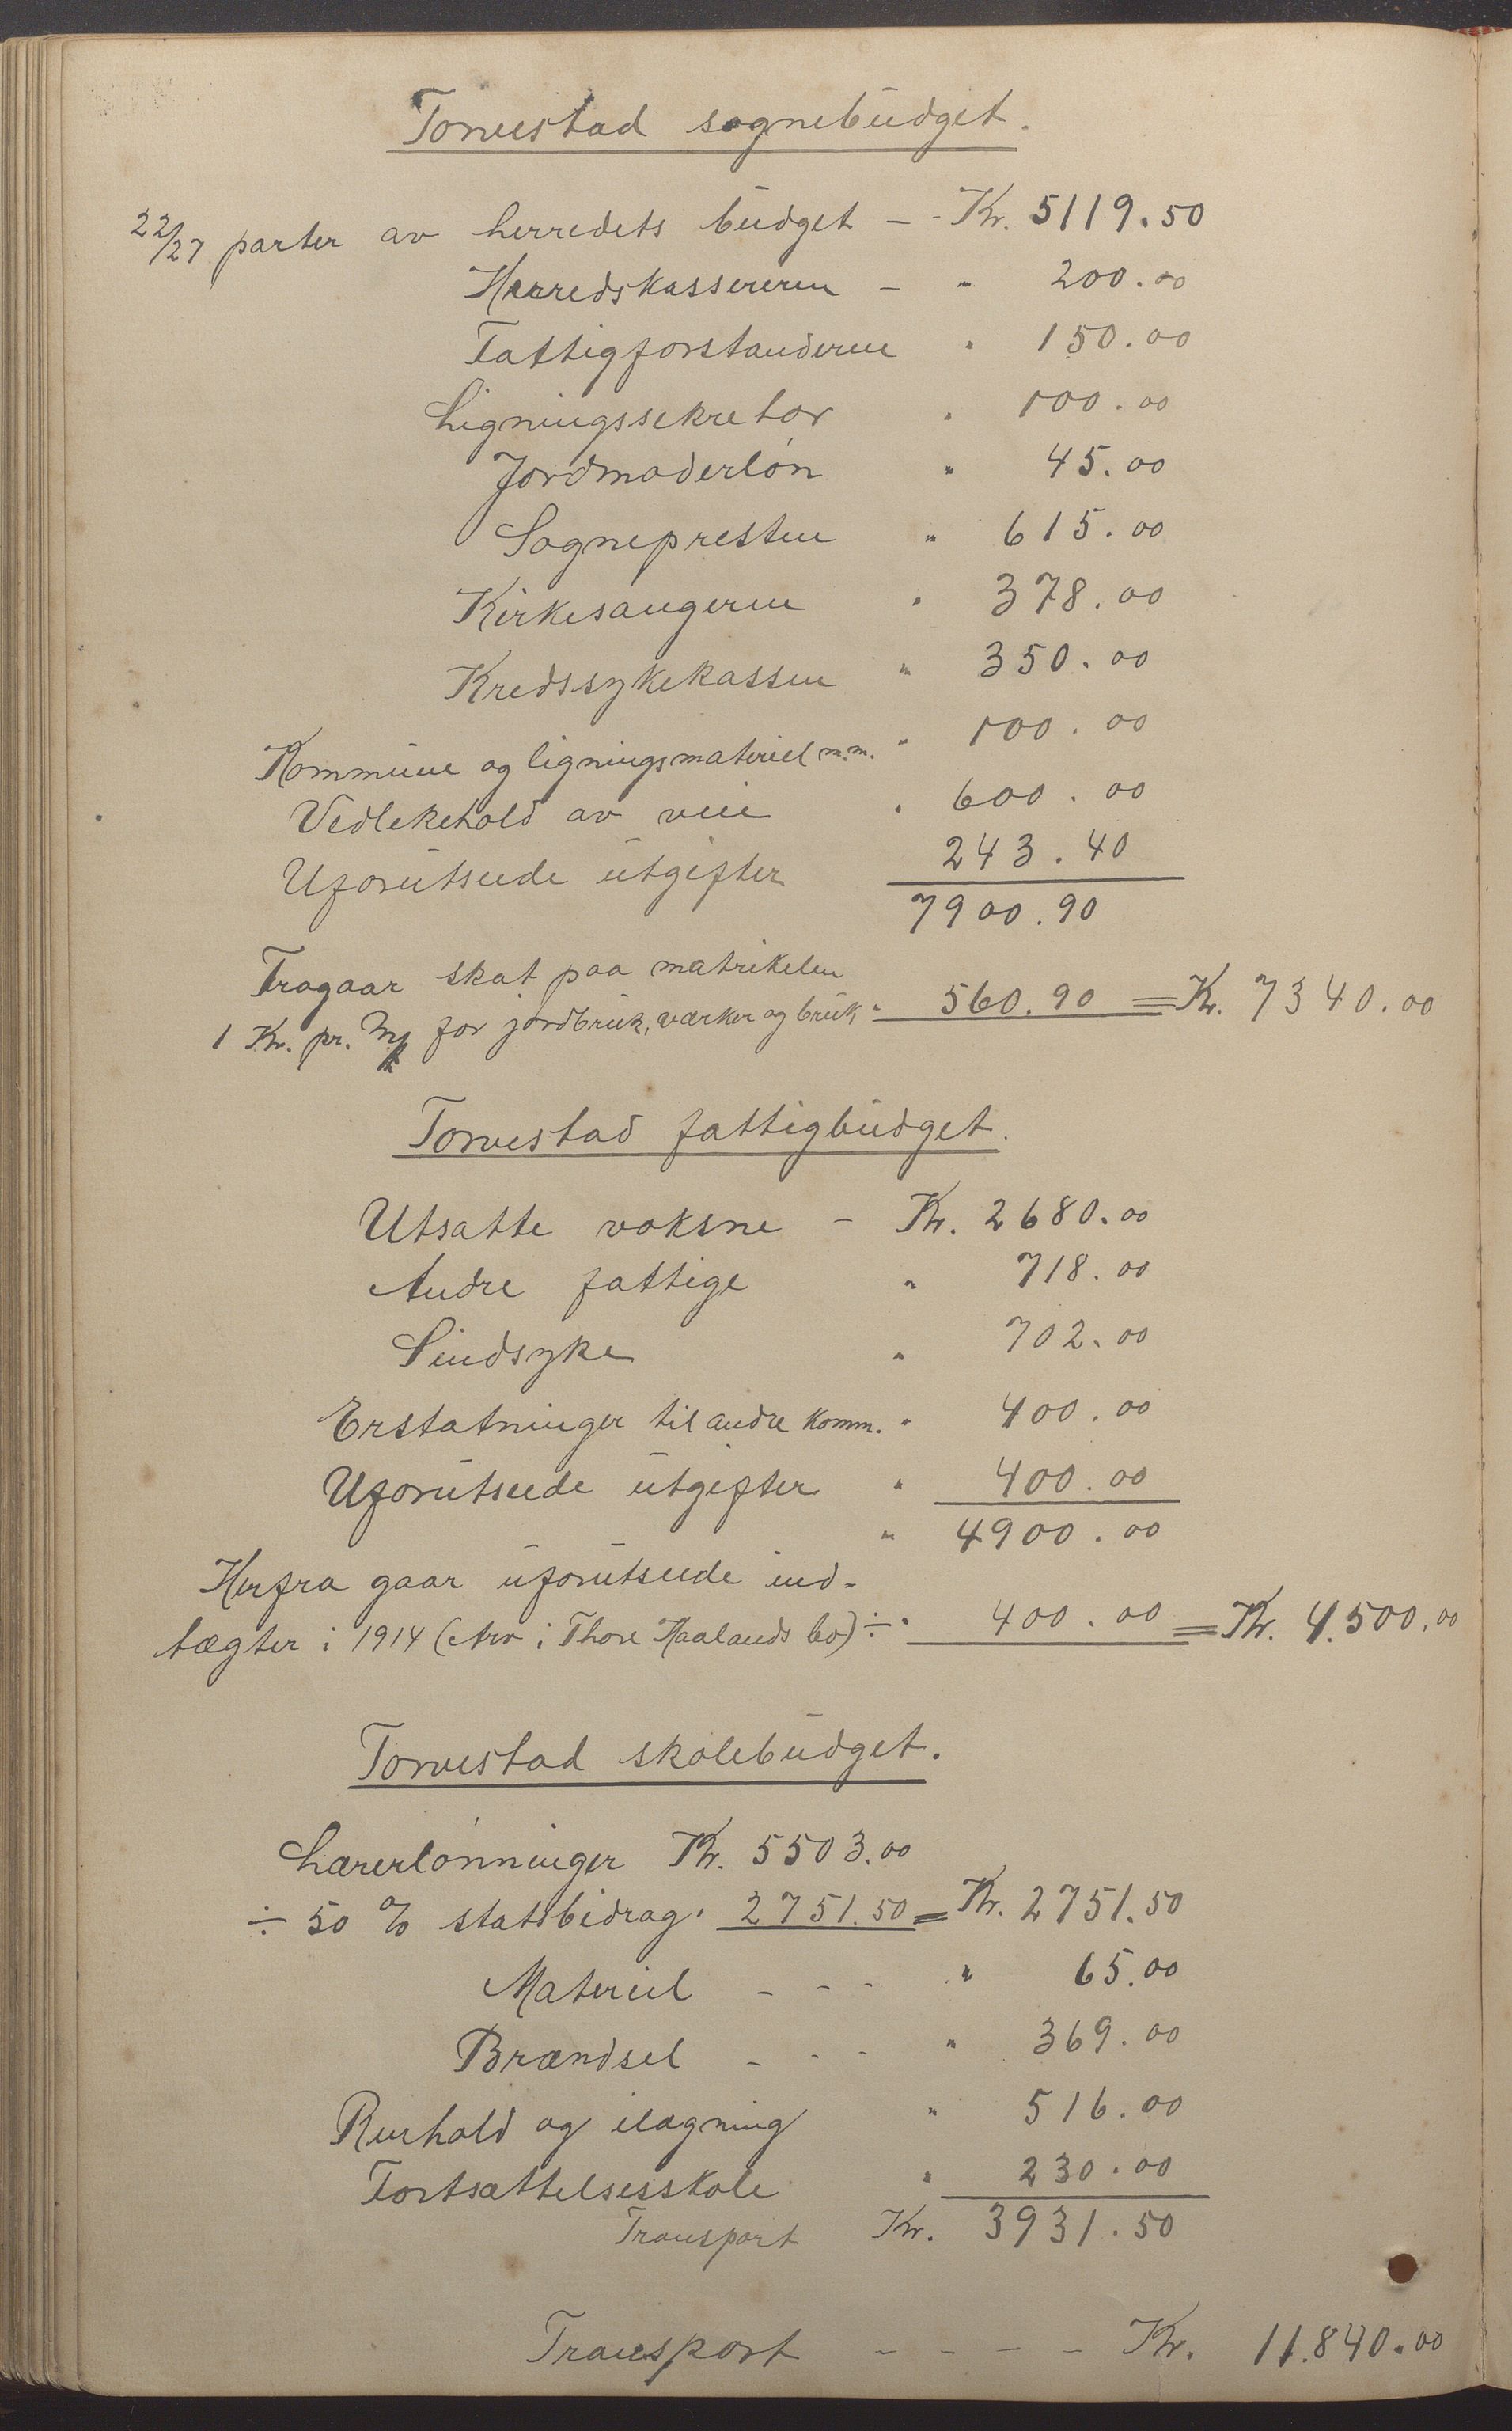 Torvestad sognebudget.
22/27 parter av herredets budget – - Kr. 5119.50
Herredskassereren – " 200.00
Fattigforstanderen " 150.00
Ligningssekretær " 100.00
Jordmoderløn " 45.00
Sognepresten " 615.00
Kirkesangeren " 378.00
Kredssykekassen " 350.00
Kommune og ligningsmateriel m.m. " 100.00
Vedlekehold av veie " 600.00
Uforutseede utgifter 243.40
7900.90
Fragaar skat paa matrikelen
1 Kr. pr. Mk for jordbruk, værker og bruk " 560.90 = Kr. 7340.00
Torvestad fattigbudget.
Utsatte voksne – Kr. 2680.00
Andre fattige " 718.00
Sindsyke " 702.00
Erstatninger til andre komm. " 400.00
Uforutseede utgifter " 400.00
" 4900.00
Herfra gaar uforutseede ind-
tægter i 1914 (Arv i Thore Haalands bo) ÷ " 400.00 = Kr. 4.500.00
Torvestad skolebudget.
Lærerlønninger Kr. 5503.00
÷ 50 % statsbidrag " 2751.50 = Kr. 2751.50
Materiel - - - " 65.00
Brændsel - - - " 369.00
Renhold og ilægning " 516.00
Fortsættelsesskole " 230.00
Transport Kr. 3931.50
Transport - - - - Kr. 11.840.00